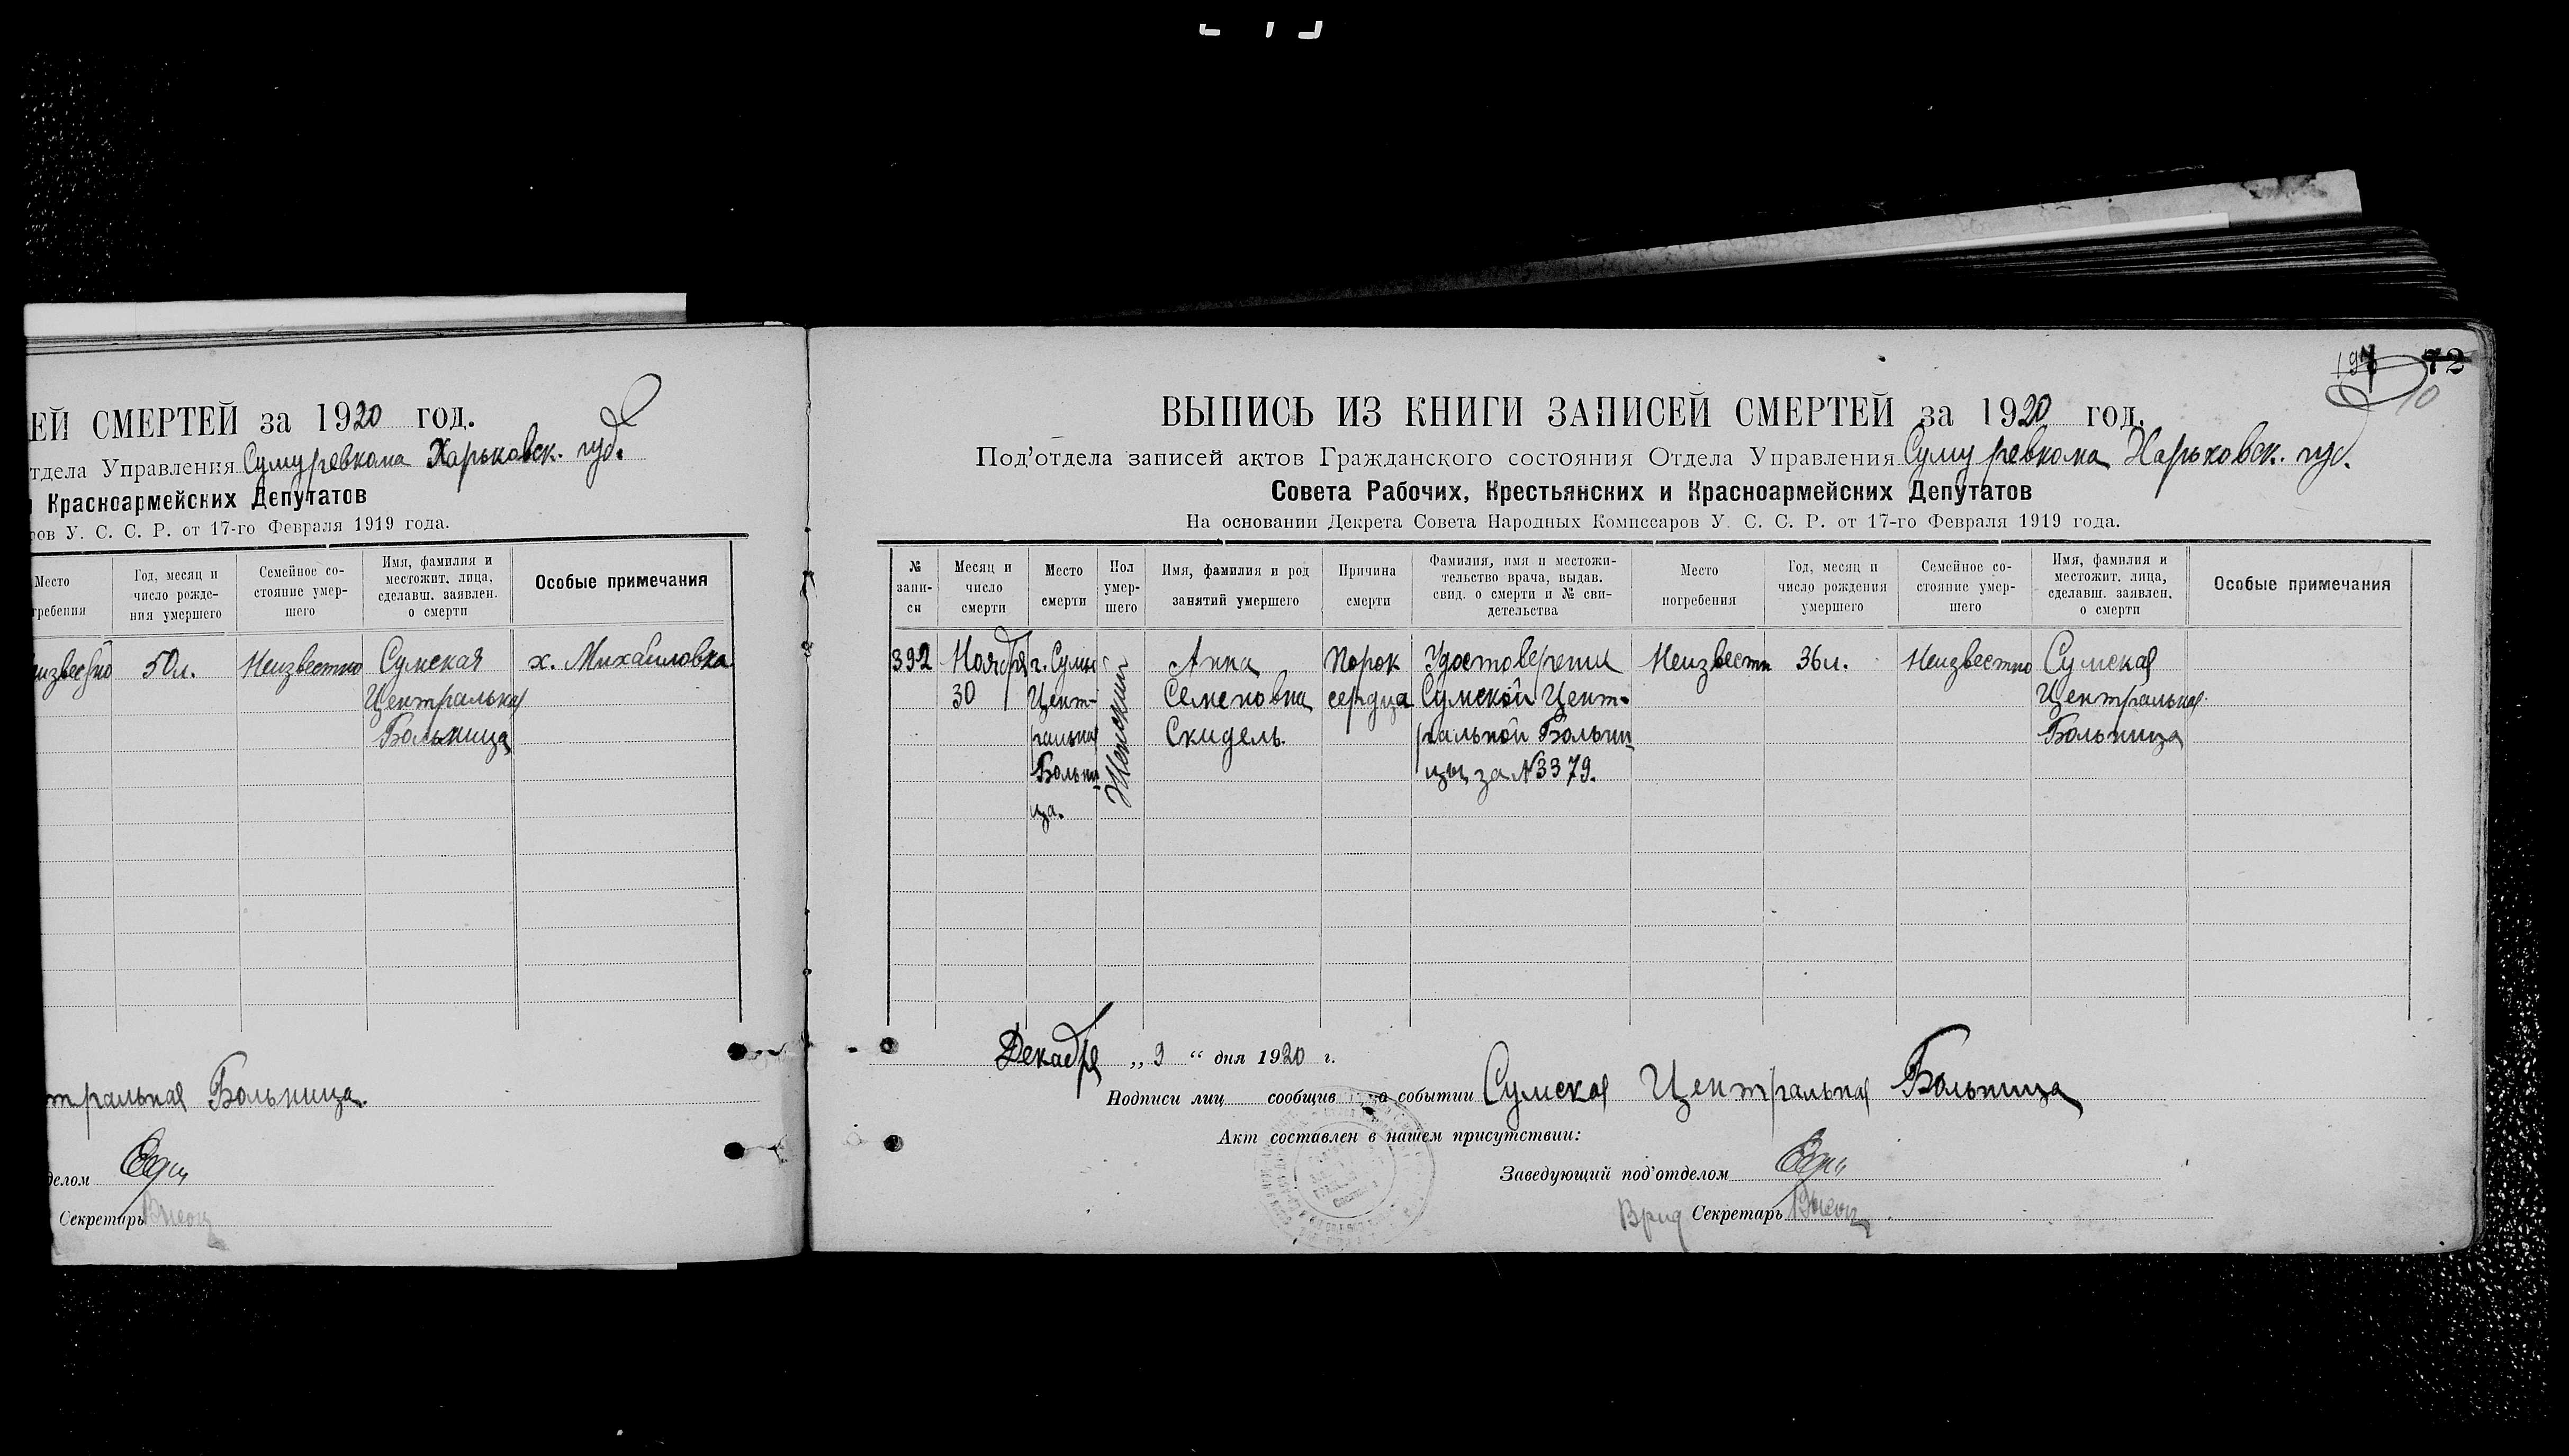 ЕЙ СМЕРТЕЙ за 1920 год.
тдела Управления Сумуревкома Харьковск. губ.
и Красноармейских Депутатов
ров У. С. С. Р. от 17-го Февраля 1919 года.
Место
гребения
Год, месяц и
число рожде-
ния умершего
Семейное со-
стояние умер-
шего
Имя, фамилия и
местожит. лица,
сделавш. заявлен.
о смерти
Особые примечания
50 л.
Неизвестно
Сумская
Центральная
Больница
х. Михайловка
тральная Больница.
делом
Секретарь
72
10
ВЫПИСЬ ИЗ КНИГИ ЗАПИСЕЙ СМЕРТЕЙ за 1920 год.
Под'отдела записей актов Гражданского состояния Отдела Управления Сумуревкома Харьковск. губ.
Совета Рабочих, Крестьянских и Красноармейских Депутатов
На основании Декрета Совета Народных Комиссаров У. С. С. Р. от 17-го Февраля 1919 года.
№
запи-
си
Месяц и
число
смерти
Место
смерти
Пол
умер-
шего
Имя, фамилия и род
занятий умершего
Причина
смерти
Фамилия, имя и местожи-
тельство врача, выдав.
свид. о смерти и № сви-
детельства
Место
погребения
Год, месяц и
число рождения
умершего
Семейное со-
стояние умер-
шего
Имя, фамилия и
местожит. лица,
сделавш. заявлен.
о смерти
Особые примечания
392
Ноября
30
г. Сумы
Цент-
ральная
Больни-
ца.
Женский
Анна
Семеновна
Скидель.
Порок
сердца
Удостоверение
Сумской Цент-
ральной Больни
цы за №3379.
Неизвестн
36 л.
Неизвестно
Сумская
Центральная
Больница
Декабря „ 9 “ дня 1920 г.
Подписи лиц сообщив о событии Сумская Центральная Больница
Акт составлен в нашем присутствии:
Заведующий под'отделом
Врид Секретарь